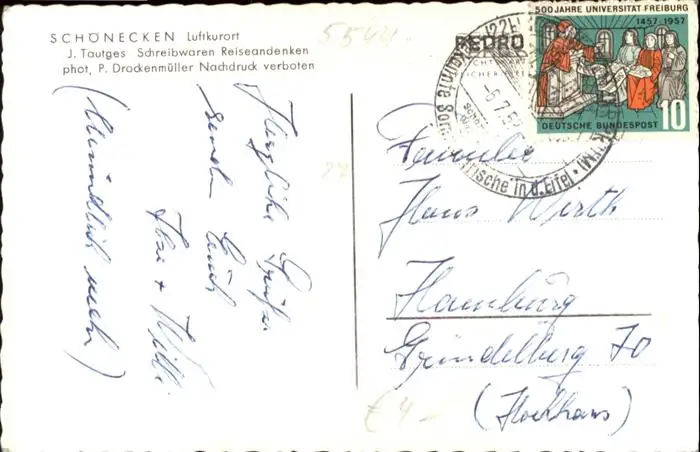 SCHÖNECKEN Luftkurort
J. Tautges Schreibwaren Reiseandenken
phot, P. Drockenmüller Nachdruck verboten
5541
Herzliche Grüße
senden Euch
+ Willi
(Mündlich mehr)
27
500 JAHRE UNIVERSITÄT FREIBURG
1457 • 1957
10
DEUTSCHE BUNDESPOST
(22b)
-6.7.5
rische in d. Eifel •
Familie
Hans Werth
Hamburg
Grindelberg 70
(Hochhaus)
€ 4-